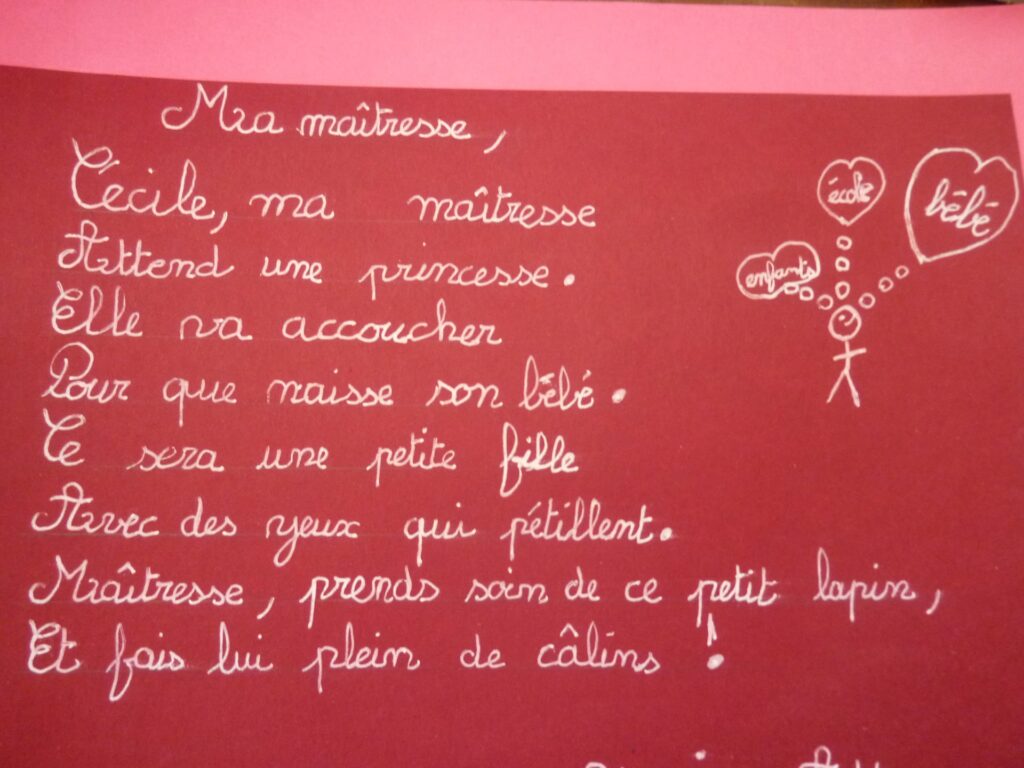 Ma maîtresse,
Cécile, ma maîtresse
Attend une princesse.
Elle va accoucher
Pour que naisse son bébé.
Ce sera une petite fille
Avec des yeux qui pétillent.
Maîtresse, prends soin de ce petit lapin,
Et fais lui plein de câlins !
école
bébé
enfants